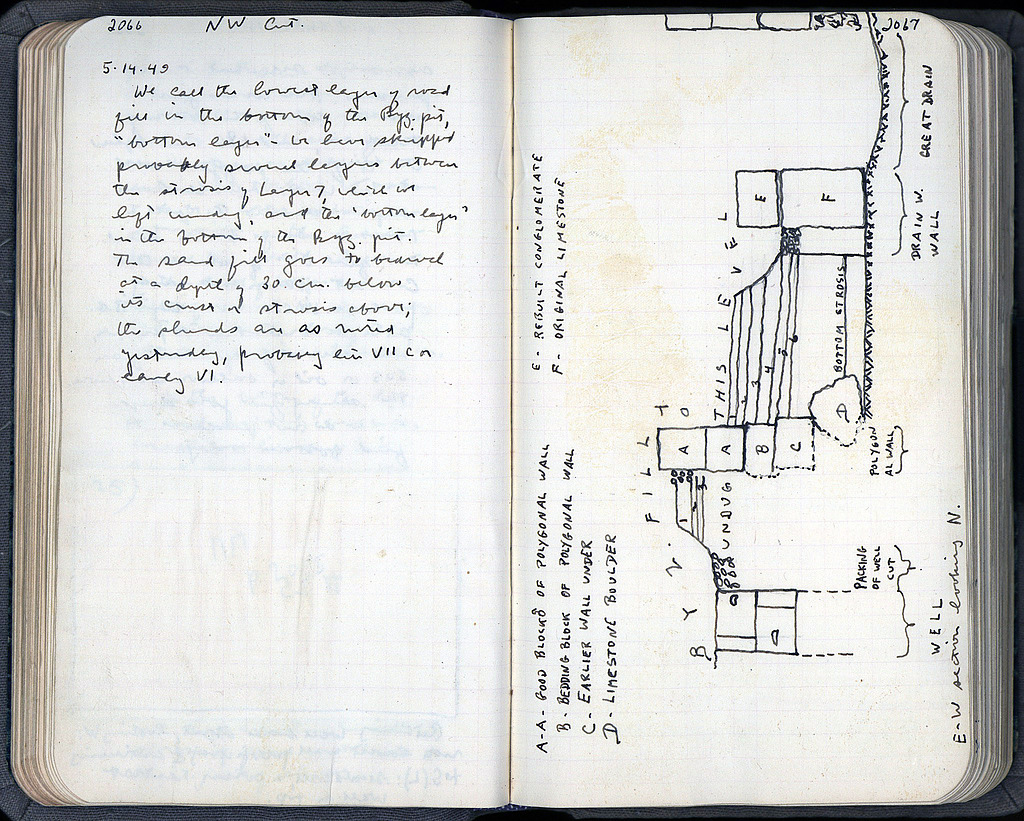 2066 NW Cut.
5.14.49
We call the lowest layer of road
fill in the bottom of the Byz. pit,
"bottom layer" - we have skipped
probably several layers between
the strosis of Layer 7, which we
left undug, and the "bottom layer"
in the bottom of the Byz. pit.
The sand fill goes to bedrock
at a depth of 30. cm. below
its crust or strosis above;
the sherds are as noted
yesterday, probably late VII c or
early VI.
2067
A-A - GOOD BLOCKS OF POLYGONAL WALL
B - BEDDING BLOCK OF POLYGONAL WALL
C - EARLIER WALL UNDER
D - LIMESTONE BOULDER
E - REBUILT CONGLOMERATE
F - ORIGINAL LIMESTONE
BYZ. FILL TO THIS LEVEL
UNDUG
1
2
3
A
A
B
C
D
1
2
3
4
5
6
BOTTOM STROSIS
E
F
WELL
PACKING
OF WELL
CUT
POLYGON
AL WALL
DRAIN W.
WALL
GREAT DRAIN
E-W section looking N.